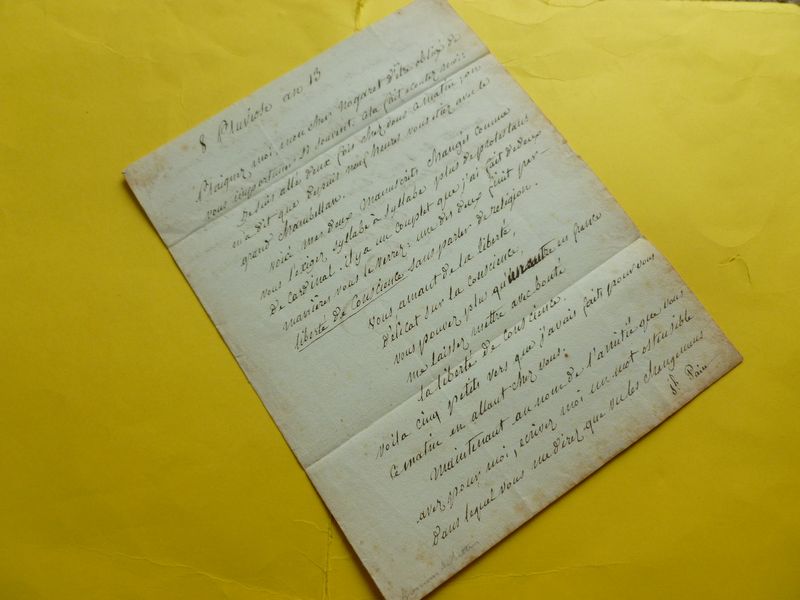 8 Pluviose an 13
Plaignez moi, mon cher Nogaret d'être obligé de
vous importuner si souvent: cela fait
je suis allé deux fois chez vous ce matin: on
m'a dit que depuis neuf heures vous étiez avec le
grand Chambellan.
voici mes deux manuscrits changés comme
vous l'exigez syllabe à syllabe plus de protestans
de cardinal. il y a un couplet que j'ai fait de deux
manières vous le verrez: une des deux finit par
liberté de conscience sans parler de religion.
vous amant de la liberté,
Délicat sur la conscience,
vous pouvez plus qu'un autre en france
me laisser mettre avec bonté
la liberté de conscience.
voila cinq petits vers que j'avais faits pour vous
ce matin en allant chez vous.
Maintenant au nom de l'amitié que vous
avez pour moi, ecrivez moi un mot ostensible
dans lequel vous me direz que vu les changemens